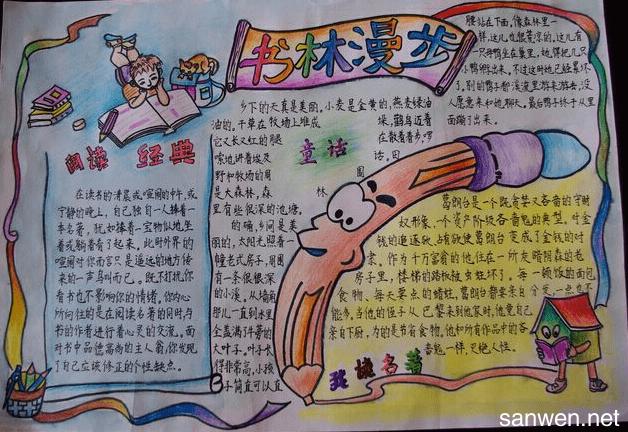 书林漫步
阅读 经典
在读书的清晨或喧闹的中午,或
宁静的晚上,自己独自一人捧着一
本名著,犹如捧着一宝物似地坐
着或躺着看了起来,此时外界的
喧闹对你而言只是遥远的地方传
来的一声鸟叫而已。既不打扰你
看书也不影响你的情绪,你内心
所向往的是在阅读名著的同时与
书的作者进行着心灵的交流,面
对书中品德高尚的主人翁,你发现
了自己应该修正的个性缺点。
童话
乡下的天真是美丽。小麦是金黄的,燕麦绿油
油的。干草在牧场上堆成垛,鹳鸟迈着
它又长又红的腿在散着步,啰
嗦地讲着埃及话。田
野和牧场的周围
是大森林,森林
里有些很深的池塘。
的确,乡间是美
丽的,太阳光照着一
幢老式房子,周围
有一条很深
的小溪。从墙角
那儿一直到水里
全盖满了牛蒡的
大叶子。叶子长
得非常高,小孩
子简直可以直
腰站在下面,像森林里一
样,这儿也很荒凉的。这儿有
一只母鸭坐在巢里,她得把几只
小鸭孵出来,不过这时她已经累坏
了。别的鸭子都溪流里游来游去,没
人愿意来和她聊天。最后鸭子终于从里
面蹦了出来。
葛朗台是一个既贪婪又吝啬的守财
奴形象,一个资产阶级吝啬鬼的典型。对金
钱的追逐欲,占有欲使葛朗台变成了金钱的对
家,作为十万富翁的他,住在一所灰暗阴森的老
房子里,楼梯的踏板被虫蛀坏了。每一顿饭的面包
食物,每天要点的蜡烛,葛朗台都要亲自分发一点也不
能多,当他的侄子从巴黎来到他家时,他竟自己
亲自下厨,为的是节省食物,他和所有作品中的吝
啬鬼一样,灭绝人性。
我读名著
sanwen.net